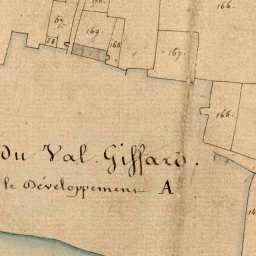 166.
168
169
167.
166.
du Val Giffard.
le Développement A